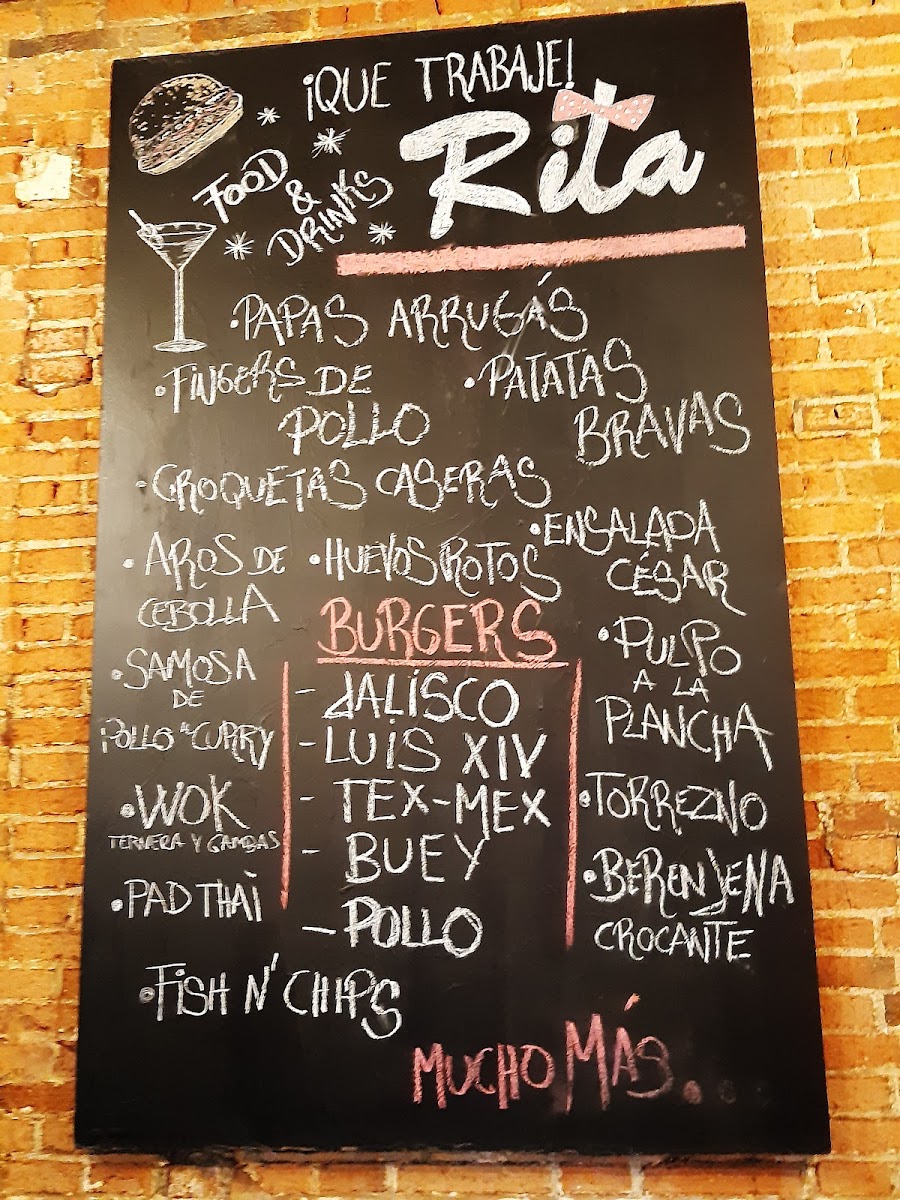 ¡QUE TRABAJE!
Rita
FOOD
&
DRINKS
•PAPAS ARRUGÁS
•FINGERS DE
POLLO
•PATATAS
BRAVAS
-CROQUETAS CASERAS
•AROS DE
CEBOLLA
•HUEVOS ROTOS
•ENSALADA
CÉSAR
•SAMOSA
DE
POLLO AL CURRY
•WOK
TERNERA Y GAMBAS
•PAD THAI
•FISH N' CHIPS
BURGERS
- JALISCO
- LUIS XIV
- TEX-MEX
- BUEY
- POLLO
•PULPO
A LA
PLANCHA
•TORREZNO
•BERENJENA
CROCANTE
MUCHO MÁS...